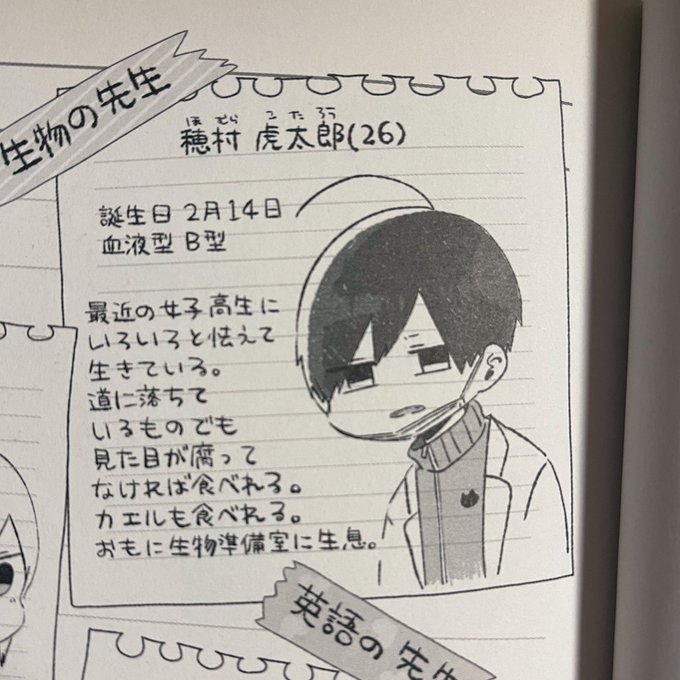 生物の先生
ほむら こたろう
穂村 虎太郎(26)
誕生日 2月14日
血液型 B型
最近の女子高生に
いろいろと怯えて
生きている。
道に落ちて
いるものでも
見た目が腐って
なければ食べれる。
カエルも食べれる。
おもに生物準備室に生息。
英語の先生